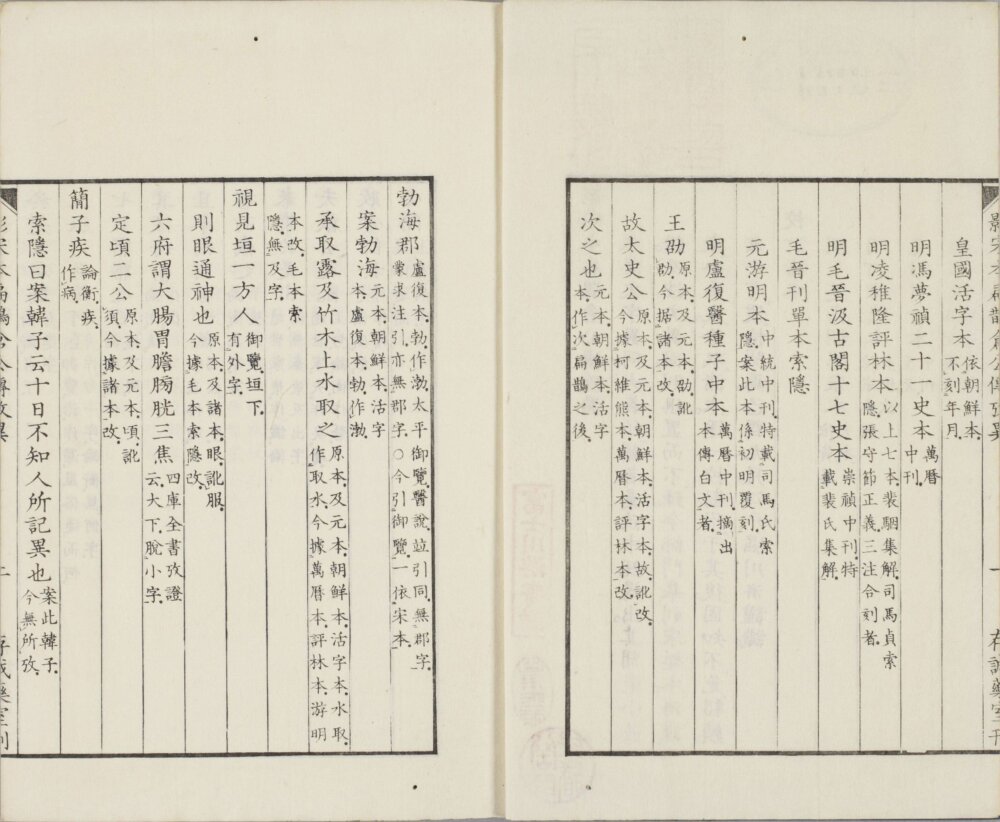 皇國活字本依朝鮮本。不刻年月。
明馮夢禎二十一史本萬曆中刊。
明凌稚隆評林本以上七本。裴駰集解。司馬貞索隱。張守節正義。三注合刻者。
明毛晉汲古閣十七史本崇禎中刊。特載裴氏集解。
毛晉刊單本索隱
元游明本中統中刊。特載司馬氏索隱。案此本係初明覆刻。
明盧復醫種子中本萬曆中刊。摘出本傳白文者。
王劭原本。及元本。劭訛勁。今据諸本改。
故太史公原本。及元本。朝鮮本。活字本。故訛改。今據柯維熊本。萬曆本。評林本改。
次之也元本。朝鮮本。活字本。作次扁鵲之後。
勃海郡盧復本。勃作渤。太平御覽。醫說。竝引同。無郡字。蒙求注引。亦無郡字。○今引御覽。一依宋本。
案勃海元本。朝鮮本。活字本。盧復本。勃作渤
承取露及竹木上水取之原本。及元本。朝鮮本。活字本。水取。作取水。今據萬曆本。評林本。游明
本改。毛本索隱。無及字。
視見垣一方人御覽。垣下。有外字。
則眼通神也原本。及諸本。眼訛服。今據毛本索隱改。
六府謂大腸胃膽膀胱三焦四庫全書攷證云。大下。脫小字。
定頃二公原本。及元本。頃訛須。今據諸本改。
簡子疾論衡。疾作病。
索隱曰案韓子云十日不知人所記異也案此韓子。今無所攷。
二